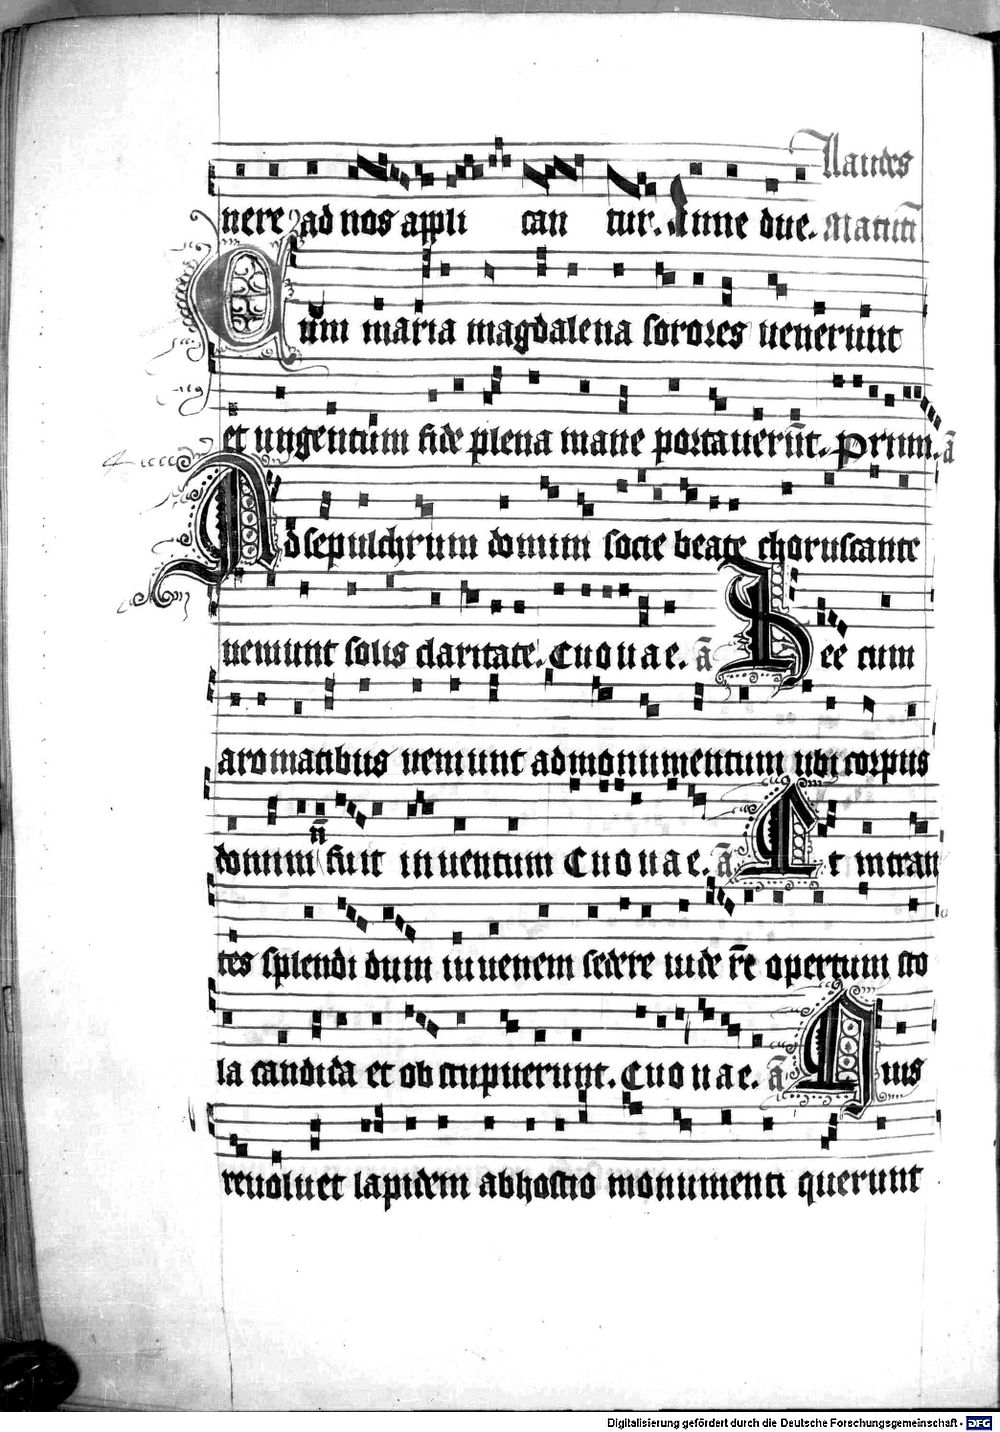 Laudes
nere ad nos appli can tur. Anne due. Matuti
Cum maria magdalena sorores uenerunt
et ungentum fide plena mane portauerūt. Prium. ā
Ad sepulchrum domini socie beate choruscante
ueniunt solis claritate. Euouae. ā Hee cum
aromatibus ueniunt ad monumentum ubi corpus
n̄
domini fuit inuentum Euouae. ā Et intran
tes splendidum iuuenem sedere uide rē opertum sto
la candida et obstupuerunt. Euouae. ā Quis
reuoluet lapidem ab hostio monumenti querunt
Digitalisierung gefördert durch die Deutsche Forschungsgemeinschaft - DFG